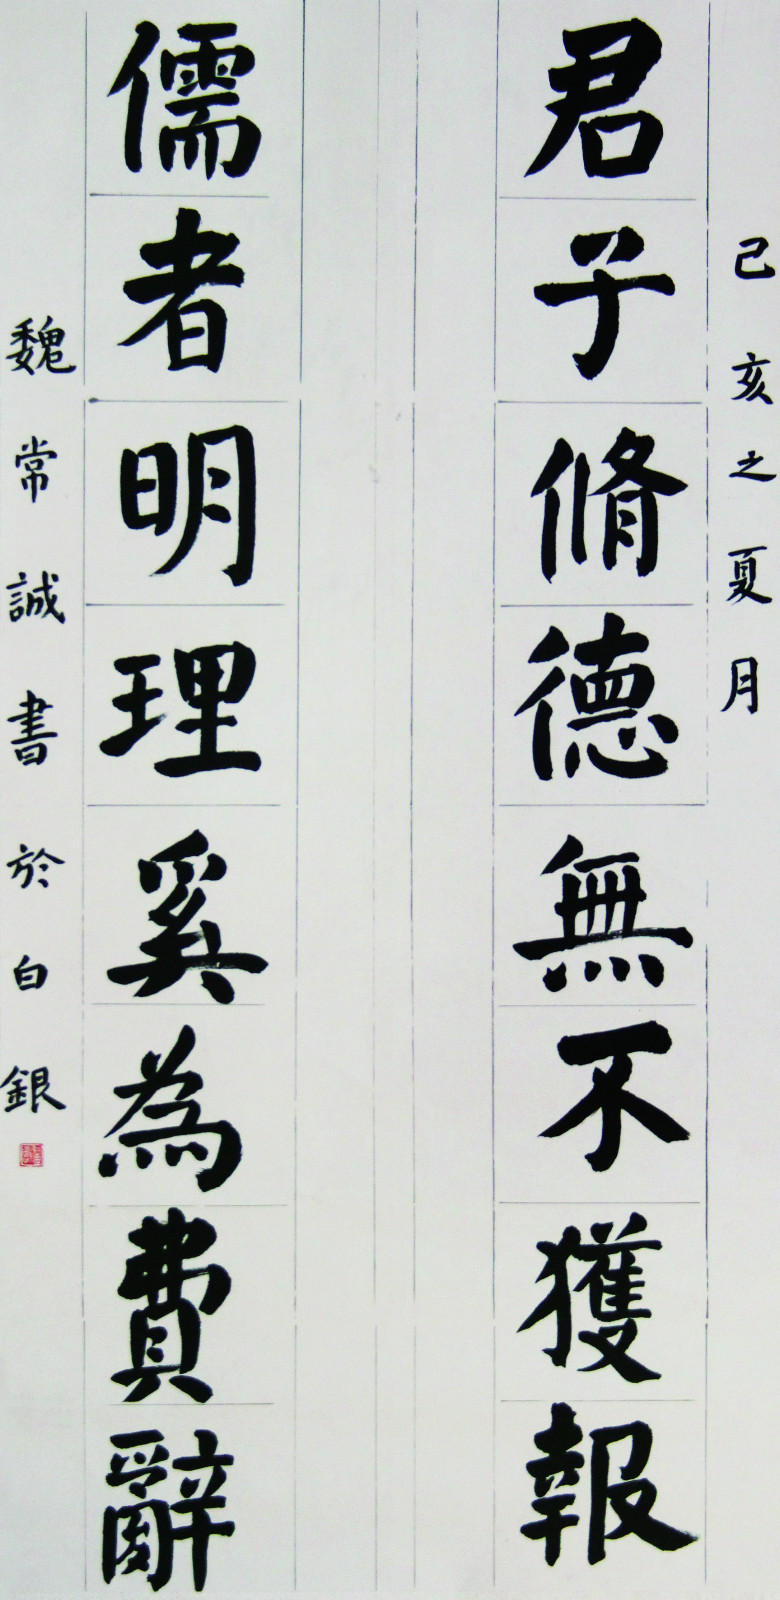 己亥之夏月
君子脩德無不獲報
儒者明理奚為費辭
魏常誠書於白銀